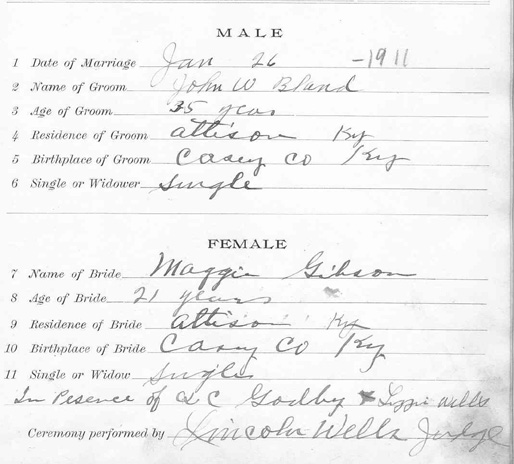 MALE
1 Date of Marriage Jan 26 - 1911
2 Name of Groom John W Bland
3 Age of Groom 35 years
4 Residence of Groom attison Ky
5 Birthplace of Groom Casey Co Ky
6 Single or Widower Single
FEMALE
7 Name of Bride Maggie Gibson
8 Age of Bride 21 years
9 Residence of Bride attison Ky
10 Birthplace of Bride Casey Co Ky
11 Single or Widow Single
In Pesence of C Godby & Lizzie Wells
Ceremony performed by Lincoln Wells Judge